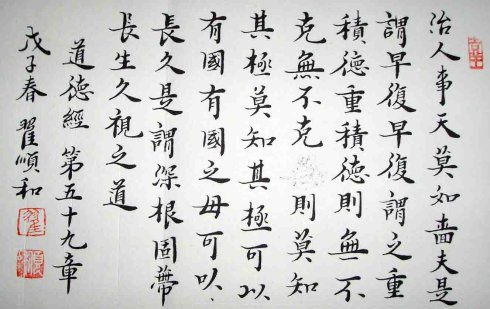 治人事天莫如嗇夫是
謂早復早復謂之重
積德重積德則無不
克無不克則莫知
其極莫知其極可以
有國有國之母可以
長久是謂深根固蒂
長生久視之道
道德經第五十九章
戊子春翟順和